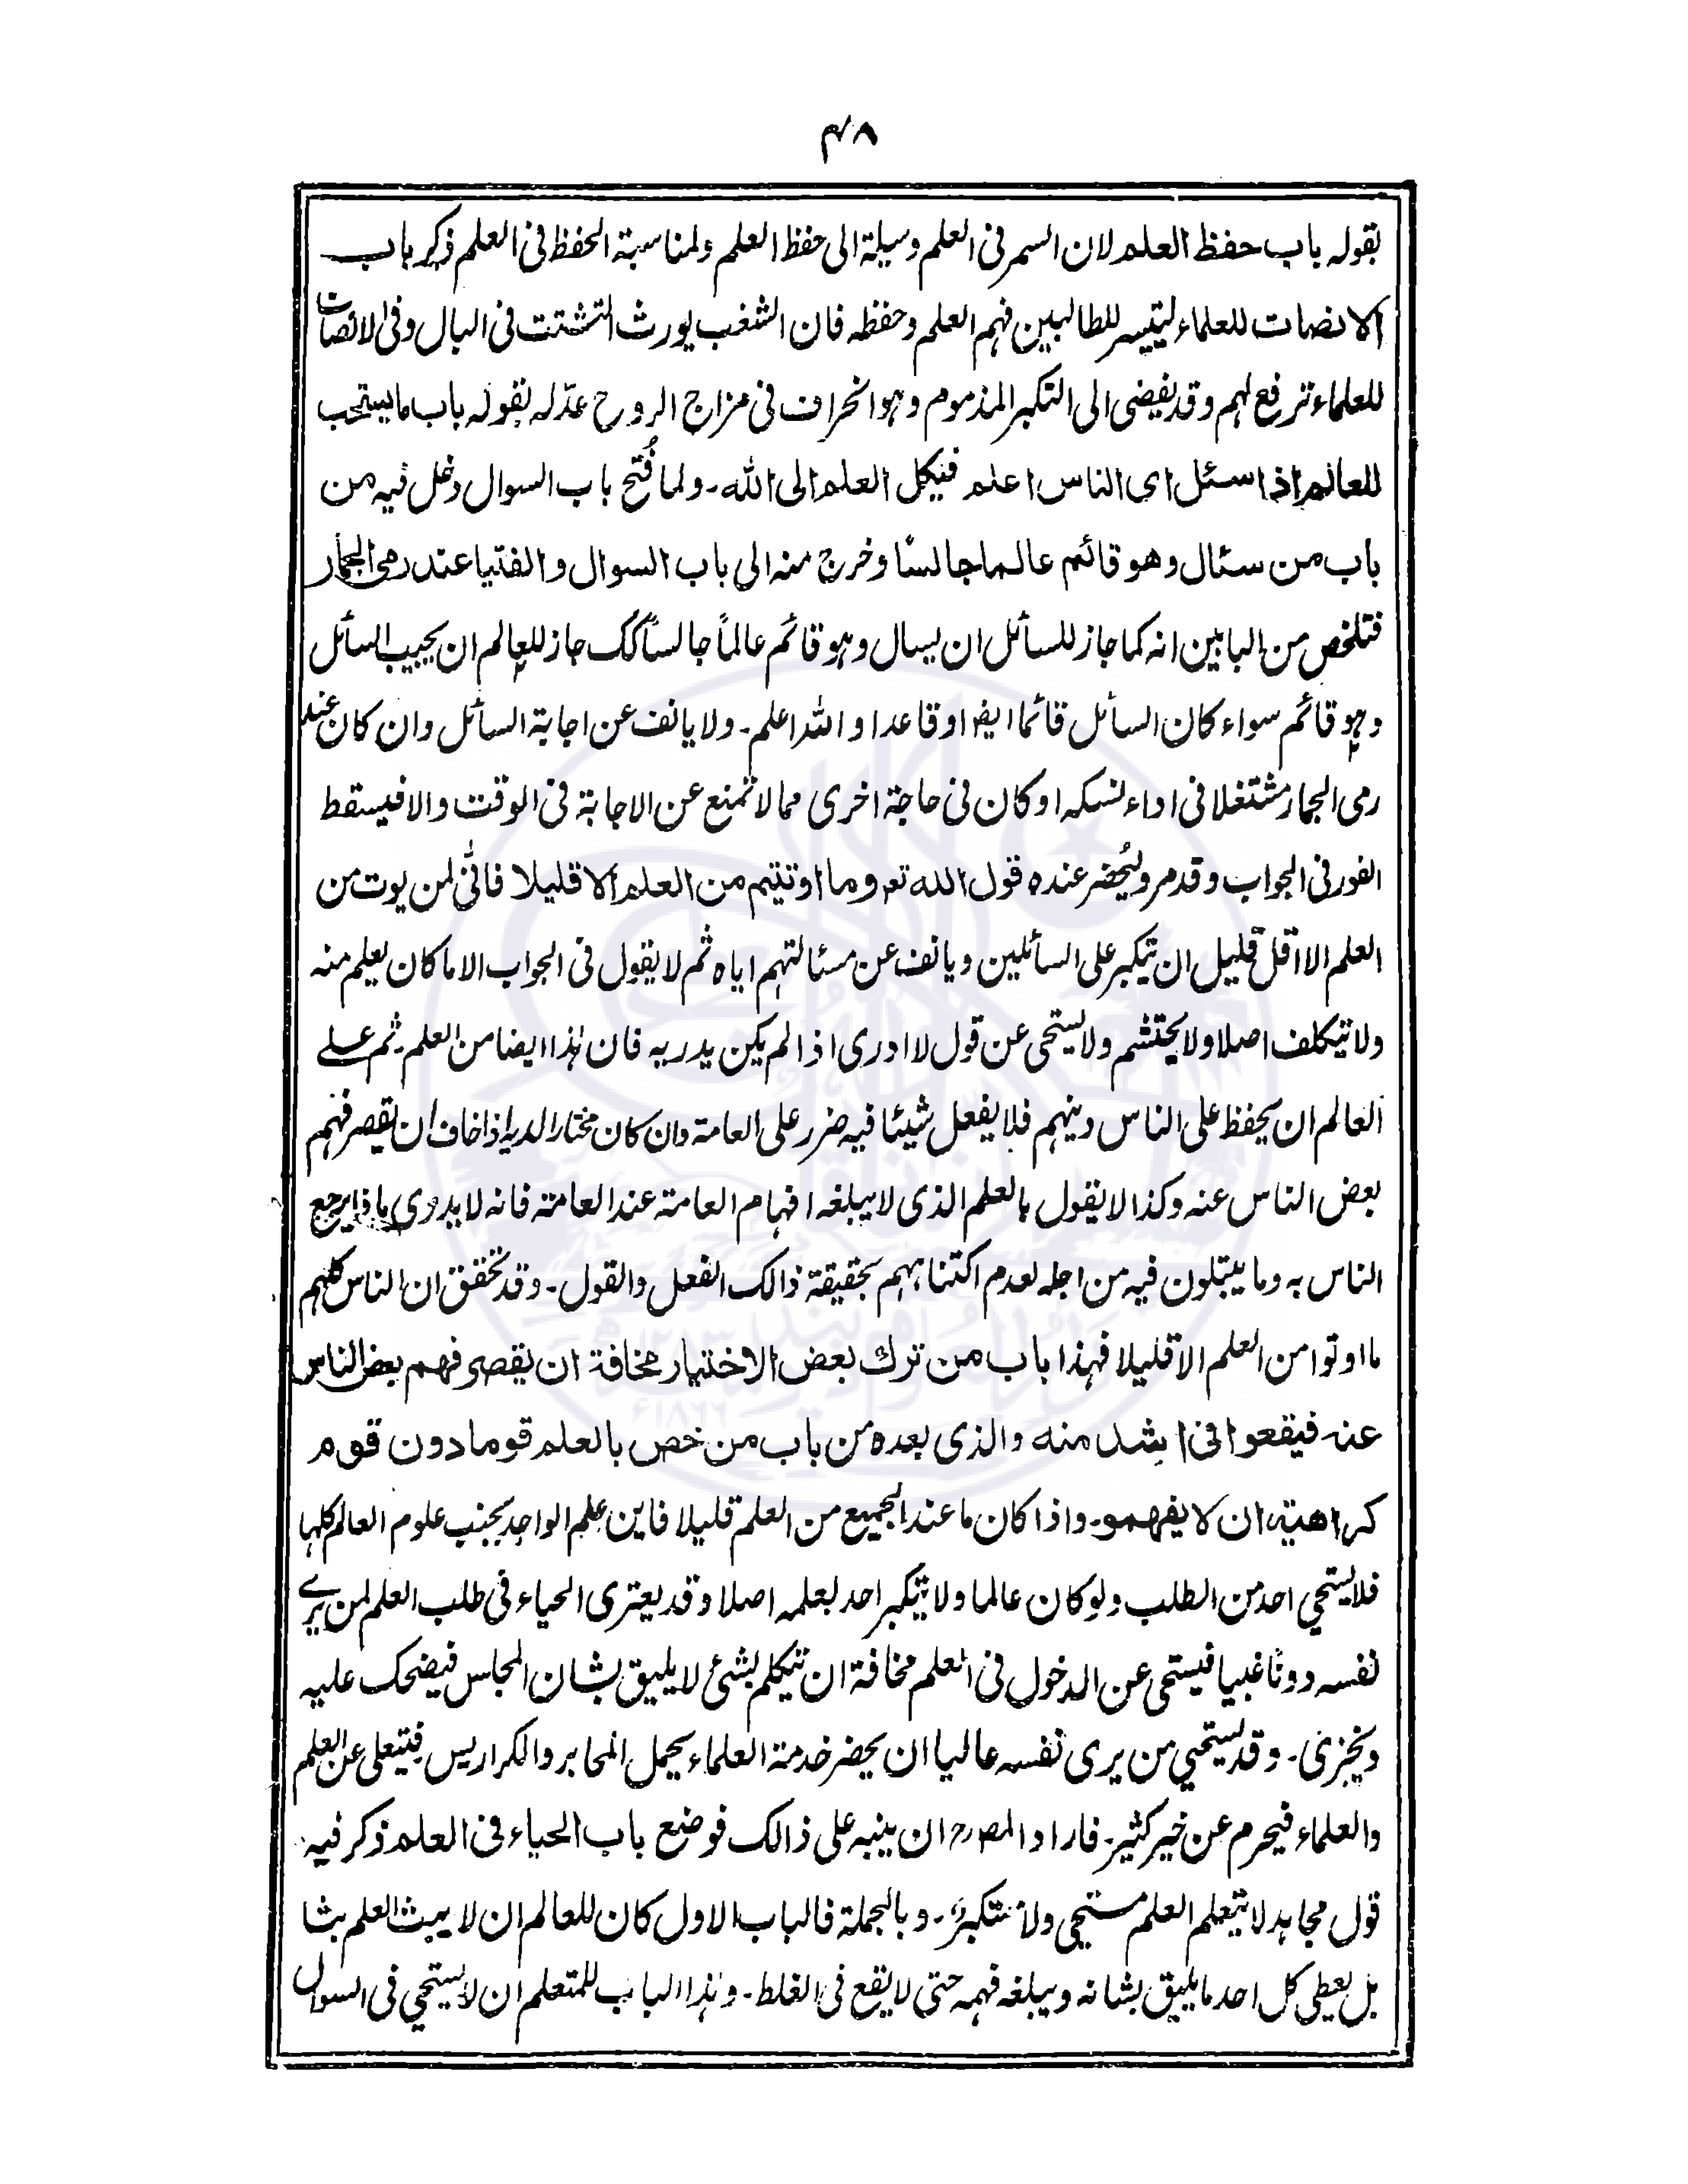 ۴۸
بقوله باب حفظ العلم لان السمر فى العلم وسيلة الى حفظ العلم ولمناسبة الحفظ فى العلم ذكر باب
الانصات للعلماء ليتيسر للطالبين فهم العلم وحفظه فان الشغب يورث التشتت فى البال وفى الانصات
للعلماء ترفع لهم وقد يفضى الى التكبر المذموم وهو انحراف فى مزاج الروح عدّله بقوله باب ما يستحب
للعالم اذا سئل اى الناس اعلم فيكل العلم الى الله۔ ولما فُتح باب السوال دخل فيه من
باب من سئال وهو قائم عالما جالسًا وخرج منه الى باب السوال والفتيا عند رمى الجمار
فتلخص من البابين انه كما جاز للسائل ان يسال وهو قائم عالماً جالساً كك جاز للعالم ان يجيب السائل
وهو قائم سواء كان السائل قائما ايضا او قاعدا والله اعلم۔ ولا يانف عن اجابة السائل وان كان عند
رمى الجمار مشتغلا فى اداء نسكه او كان فى حاجة اخرى مما لا تمنع عن الاجابة فى الوقت والا فيسقط
الفور فى الجواب وقد مر وليُحضر عنده قول الله تعـ وما اوتيتم من العلم الا قليلا فانّى لمن يوت من
العلم الا اقل قليل ان يتكبر على السائلين ويانف عن مسئالتهم اياه ثم لا يقول فى الجواب الا ما كان يعلم منه
ولا يتكلف اصلا ولا يحتشم ولا يستحى عن قول لا ادرى اذا لم يكن يدريه فان هذا ايضا من العلم۔ ثم على
العالم ان يحفظ على الناس دينهم فلا يفعل شيئا فيه ضرر على العامة وان كان مختارا لديه اذا خاف ان يقصر فهم
بعض الناس عنه وكذا لا يقول بالعلم الذى لا يبلغه افهام العامة عند العامة فانه لا يدرى ماذا يرجع
الناس به وما يبتلون فيه من اجله لعدم اكتناههم بحقيقة ذالك الفعل والقول۔ وقد تحقق ان الناس كلهم
ما اوتوا من العلم الا قليلا فهذا باب من ترك بعض الاختيار مخافة ان يقصر فهم بعض الناس
عنه فيقعوا فى اشد منه والذى بعده من باب من خص بالعلم قوما دون قوم
كراهية ان لا يفهمو۔ واذا كان ما عند الجميع من العلم قليلا فاين علم الواحد بجنب علوم العالم كلها
فلا يستحي احد من الطلب ولو كان عالما ولا يتكبر احد بعلمه اصلا وقد يعترى الحياء فى طلب العلم لمن يرے
نفسه دونا غبيا فيستحى عن الدخول فى العلم مخافة ان يتكلم بشئ لا يليق بشان المجاس فيضحك عليه
ويخزى۔ وقد يستحيي من يرى نفسه عاليا ان يحضر خدمة العلماء بحمل المحابر والكراريس فيتعلى عن العلم
والعلماء فيحرم عن خير كثير۔ فاراد المصـ رح ان ينبه على ذالك فوضع باب الحياء فى العلم ذكر فيه
قول مجاهد لا يتعلم العلم مستحيي ولا متكبر۔ وبالجملة فالباب الاول كان للعالم ان لا يبث العلم بثا
بل يعطى كل احد ما يليق بشانه ويبلغه فهمه حتى لا يقع فى الغلط۔ وهذا الباب للمتعلم ان لا يستحي فى السوال